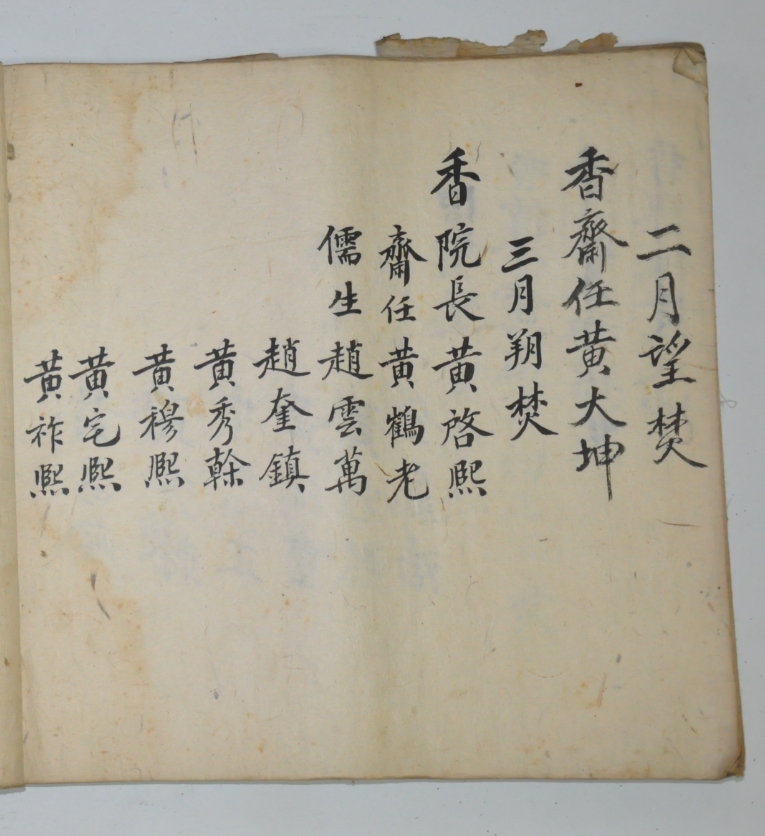 二月望焚
香齋任黄大坤
三月朔焚
香院長黄啓熙
齋任黄鶴老
儒生趙雲萬
趙奎鎮
黄秀幹
黄穆熙
黄宅熙
黄祚熙